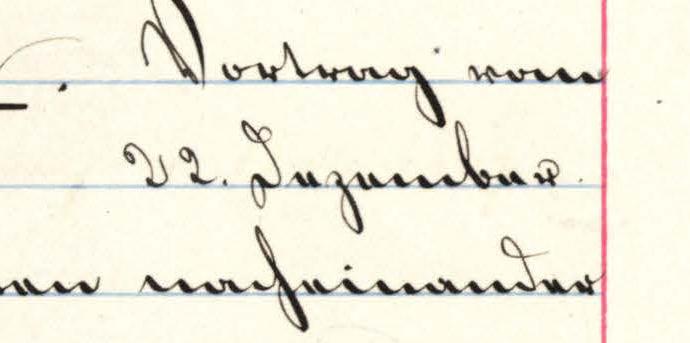 Vortrag vom
22. Dezember.
nacheinander